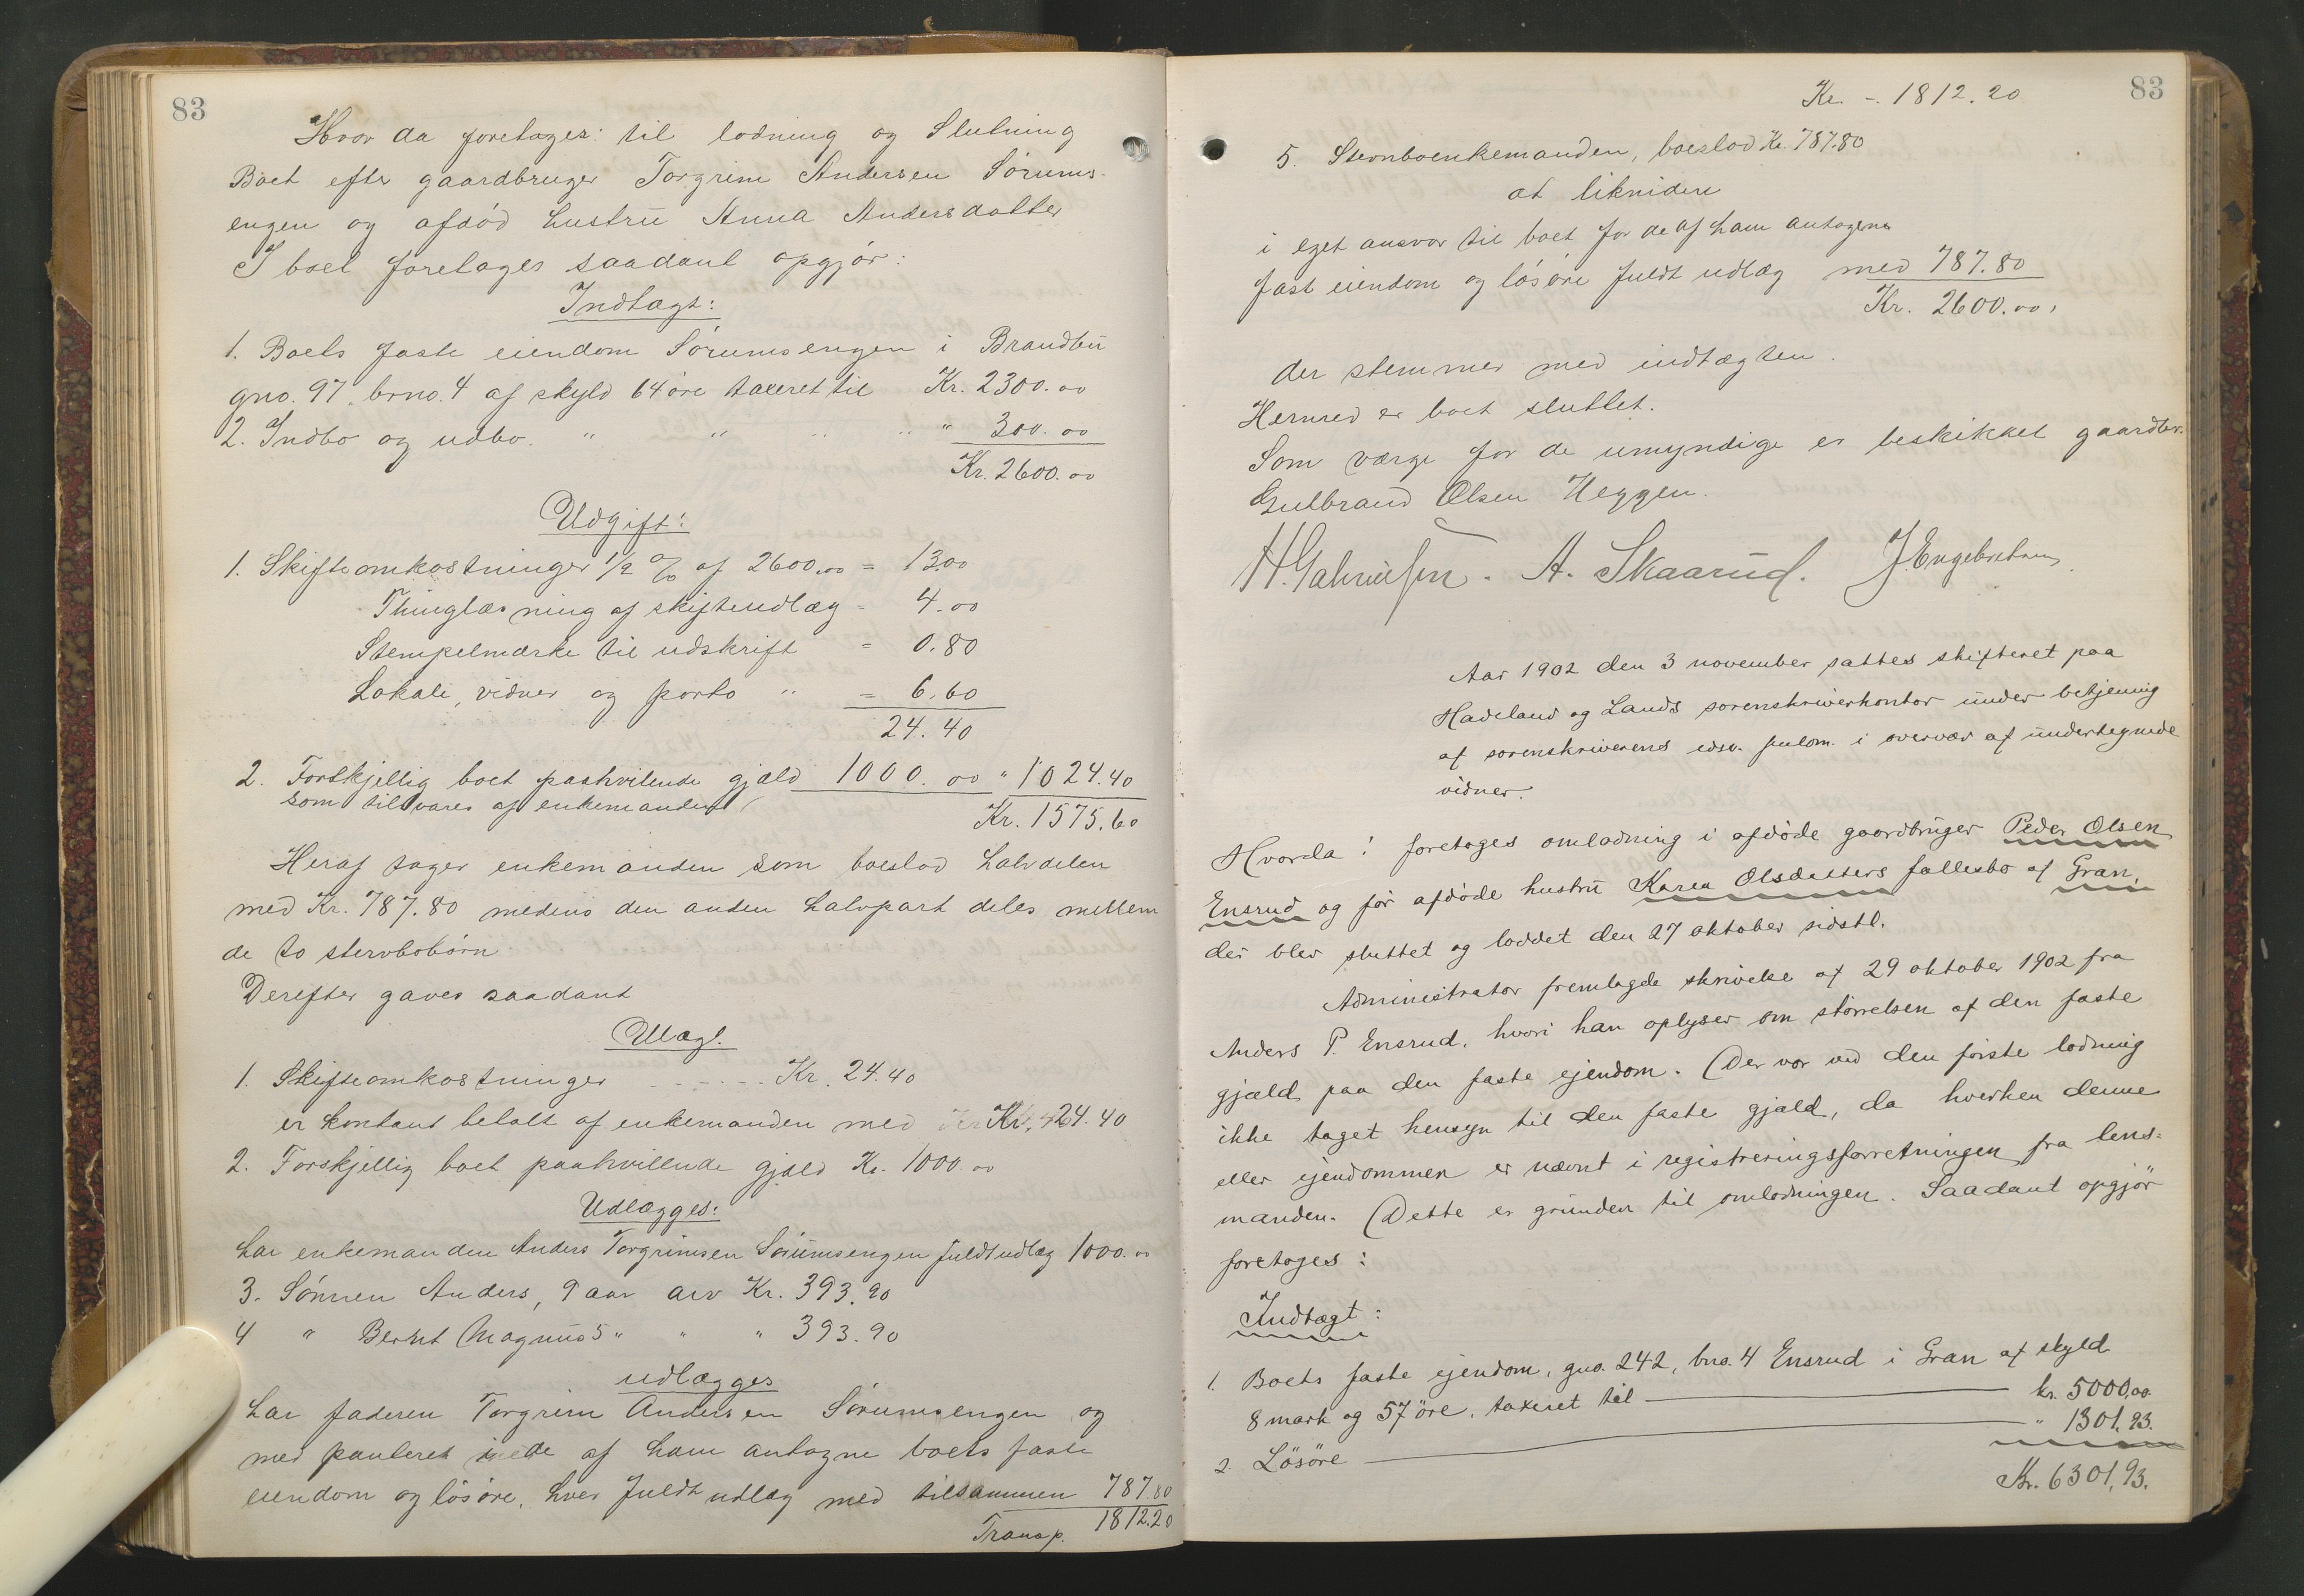 83
Hvor da foretages: til lodning og Slutning
Boet efter gaardbruger Torgrim Andersen Sörums-
engen og afdöd hustru Anna Andersdatter
I boet foretages saadant opgjör:
Indtægt:
1. Boets faste eiendom Sörumsengen i Brandbu
gno. 97. brno. 4 af skyld 64 öre taxeret til Kr. 2300.00
2. Indbo og udbo. " " " 300.00
Kr. 2600.00
Udgift:
1. Skifteomkostninger 1/2 % af 2600.00 = 13.00
Thinglæsning af skifteudlæg = 4.00
Stempelmærke til udskrift = 0.80
Lokale, vidner og porto " = 6.60
24.40
2. Forskjellig boet paahvilende gjæld 1000.00 " 1024.40
som tilsvares af enkemanden
Kr. 1575.60
Heraf tager enkemanden som boeslod halvdelen
med Kr. 787.80 medens den anden halvpart deles mellem
de to stervbobörn
Derefter gaves saadant
Udlæg.
1. Skifteomkostninger - - - - - Kr. 24.40
er kontant betalt af enkemanden med Kr. 24.40
2. Forskjellig boet paahvillende gjæld Kr. 1000.00
Udlægges:
har enkemanden Anders Torgrimsen Sörumsengen fuldt udlæg 1000.00
3. Sönnen Anders, 9 aar arv Kr. 393.90
4 " Bernt Magnus 5 " " " 393.90
udlægges
har faderen Torgrim Andersen Sörumsengen og
med panteret i de af ham antagne boets faste
eiendom og lösöre, hver fuldt udlæg med tilsammen 787.80
Transp. 1812.20
83
Kr. -. 1812.20
5. Stervboenkemanden, boeslod Kr. 787.80
at likvidere
i eget ansvar til boet for de af ham antagene
fast eiendom og lösöre fuldt udlæg med 787.80
Kr. 2600.00,
der stemmer med indtægten.
Hermed er boet sluttet.
Som værge for de umyndige er beskikket gaardbr.
Gulbrand Olsen Heggen.
H. Gabrielsen. A. Skaarud. J. Engebretsen
Aar 1902 den 3 november sattes skifteret paa
Hadeland og Lands sorenskriverkontor under betjening
af sorenskriverens edsv. fuldm. i overvær af undertegnede
vidner.
Hvorda: foretoges omlodning i afdöde gaardbruger Peder Olsen
Ensrud og för afdöde hustru Karen Olsdatters fællesbo af Gran,
der blev sluttet og loddet den 27 oktober sidstl.
Administrator fremlagde skrivelse af 29 oktober 1902 fra
Anders P. Ensrud, hvori han oplyser om störrelsen af den faste
gjæld paa den faste ejendom. (Der var ved den förste lodning
ikke taget hensyn til den faste gjæld, da hverken denne
eller ejendommen er nævnt i registreringsforretningen fra lens-
manden. (Dette er grunden til omlodningen. Saadant opgjör
foretoges:
Indtægt:
1. Boets faste ejendom, gno. 242, bno. 4 Ensrud i Gran af skyld
8 mark og 57 öre, taxeret til kr. 5000,00.
2. Lösöre " 1301,93.
Kr. 6301,93.